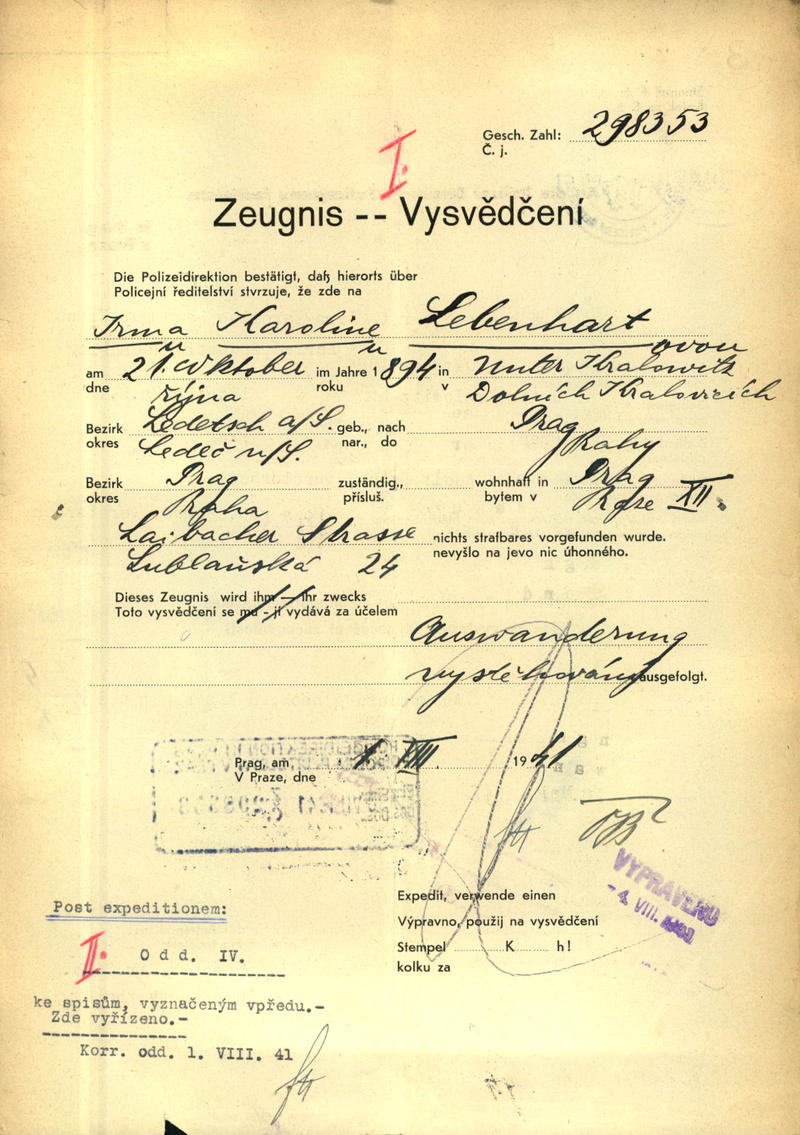 Gesch. Zahl: 298353
Č. j.
I.
Zeugnis -- Vysvědčení
Die Polizeidirektion bestätigt, daß hierorts über
Policejní ředitelství stvrzuje, že zde na
Irma Karoline Lebenhart
ovou
am 21. Oktober im Jahre 1894 in Unter Kralowitz
dne října roku v Dolních Kralovicích
Bezirk Ledetsch a/S. geb., nach Prag
okres Ledeč n/S. nar., do Prahy
Bezirk Prag zuständig., wohnhaft in Prag
okres Praha přísluš. bytem v Praze XII.
Laibacher Strasse nichts strafbares vorgefunden wurde.
Lublaňská 24 nevyšlo na jevo nic úhonného.
Dieses Zeugnis wird ihm — ihr zwecks
Toto vysvědčení se mu - jí vydává za účelem
Auswanderung
vystěhování ausgefolgt.
Prag, am 1 VIII. 1941
V Praze, dne
VYPRAVENO
- 4. VIII.
Expedit, verwende einen
Výpravno, použij na vysvědčení
Stempel K h!
kolku za
Post expeditionem:
II. Odd. IV.
ke spisům, vyznačeným vpředu.-
Zde vyřízeno.-
Korr. odd. 1. VIII. 41